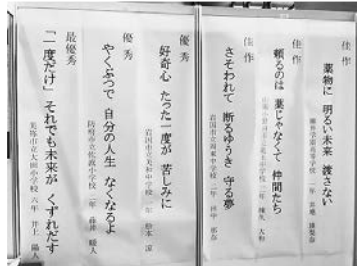 佳作
薬物に 明るい未来 渡さない
佳作
頼るのは 薬じゃなくて 仲間たち
佳作
さそわれて 断るゆうき 守る夢
岩国市立周東中学校 二年
優秀
好奇心 たった一度が 苦しみに
岩国市立美和中学校 一年 松本 涼
優秀
やくぶつで 自分の人生 なくなるよ
防府市立佐波小学校 二年 藤井 暖人
最優秀
「一度だけ」それでも未来が くずれだす
美祢市立大田小学校 六年 井上 陽人